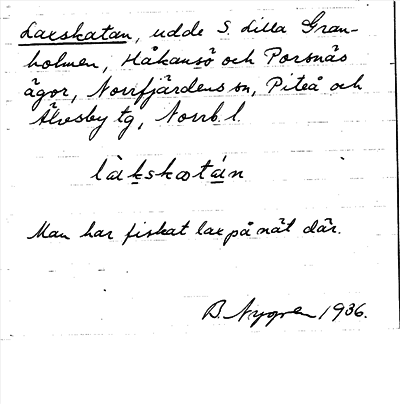 Laxskatan, udde S. Lilla Gran-
holmen, Håkansö och Porsnäs
ägor, Norrfjärdens sn, Piteå och
Älvsby tg, Norrb. l.
làkskατán
Man har fiskat lax på nät där.
B. Nygren 1936.